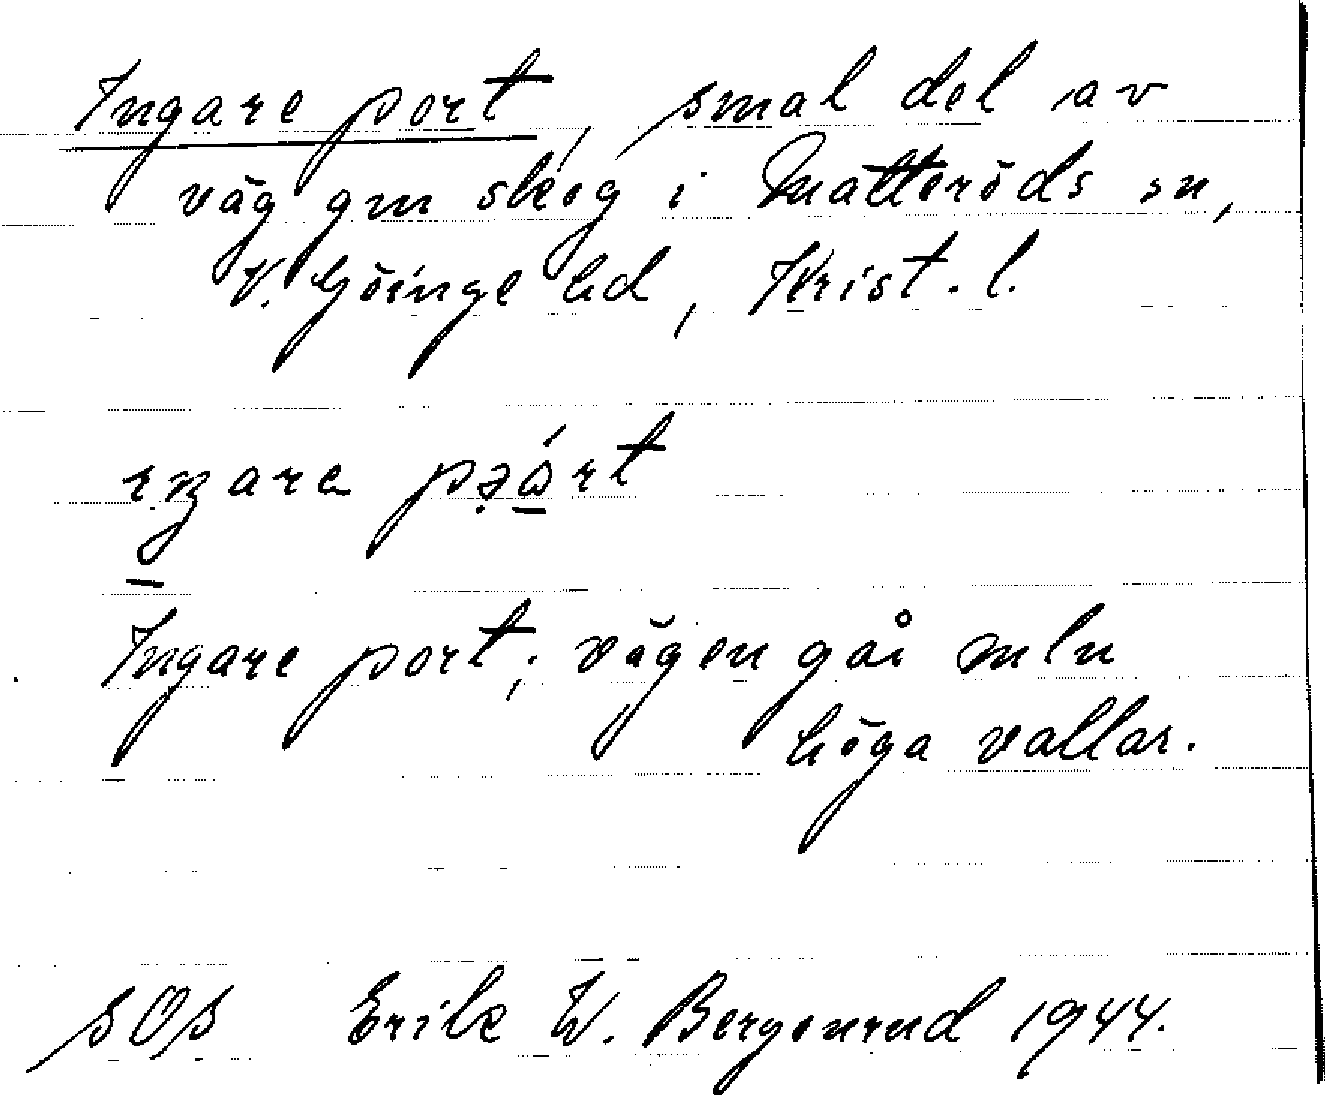 Ingare port, smal del av
väg gm skog i Matteröds sn,
V. Göinge hd, Krist. l.
ıŋare pəårt
Ingare port; vägen går mln
höga vallar.
SOS Erik W. Bergenrud 1944.